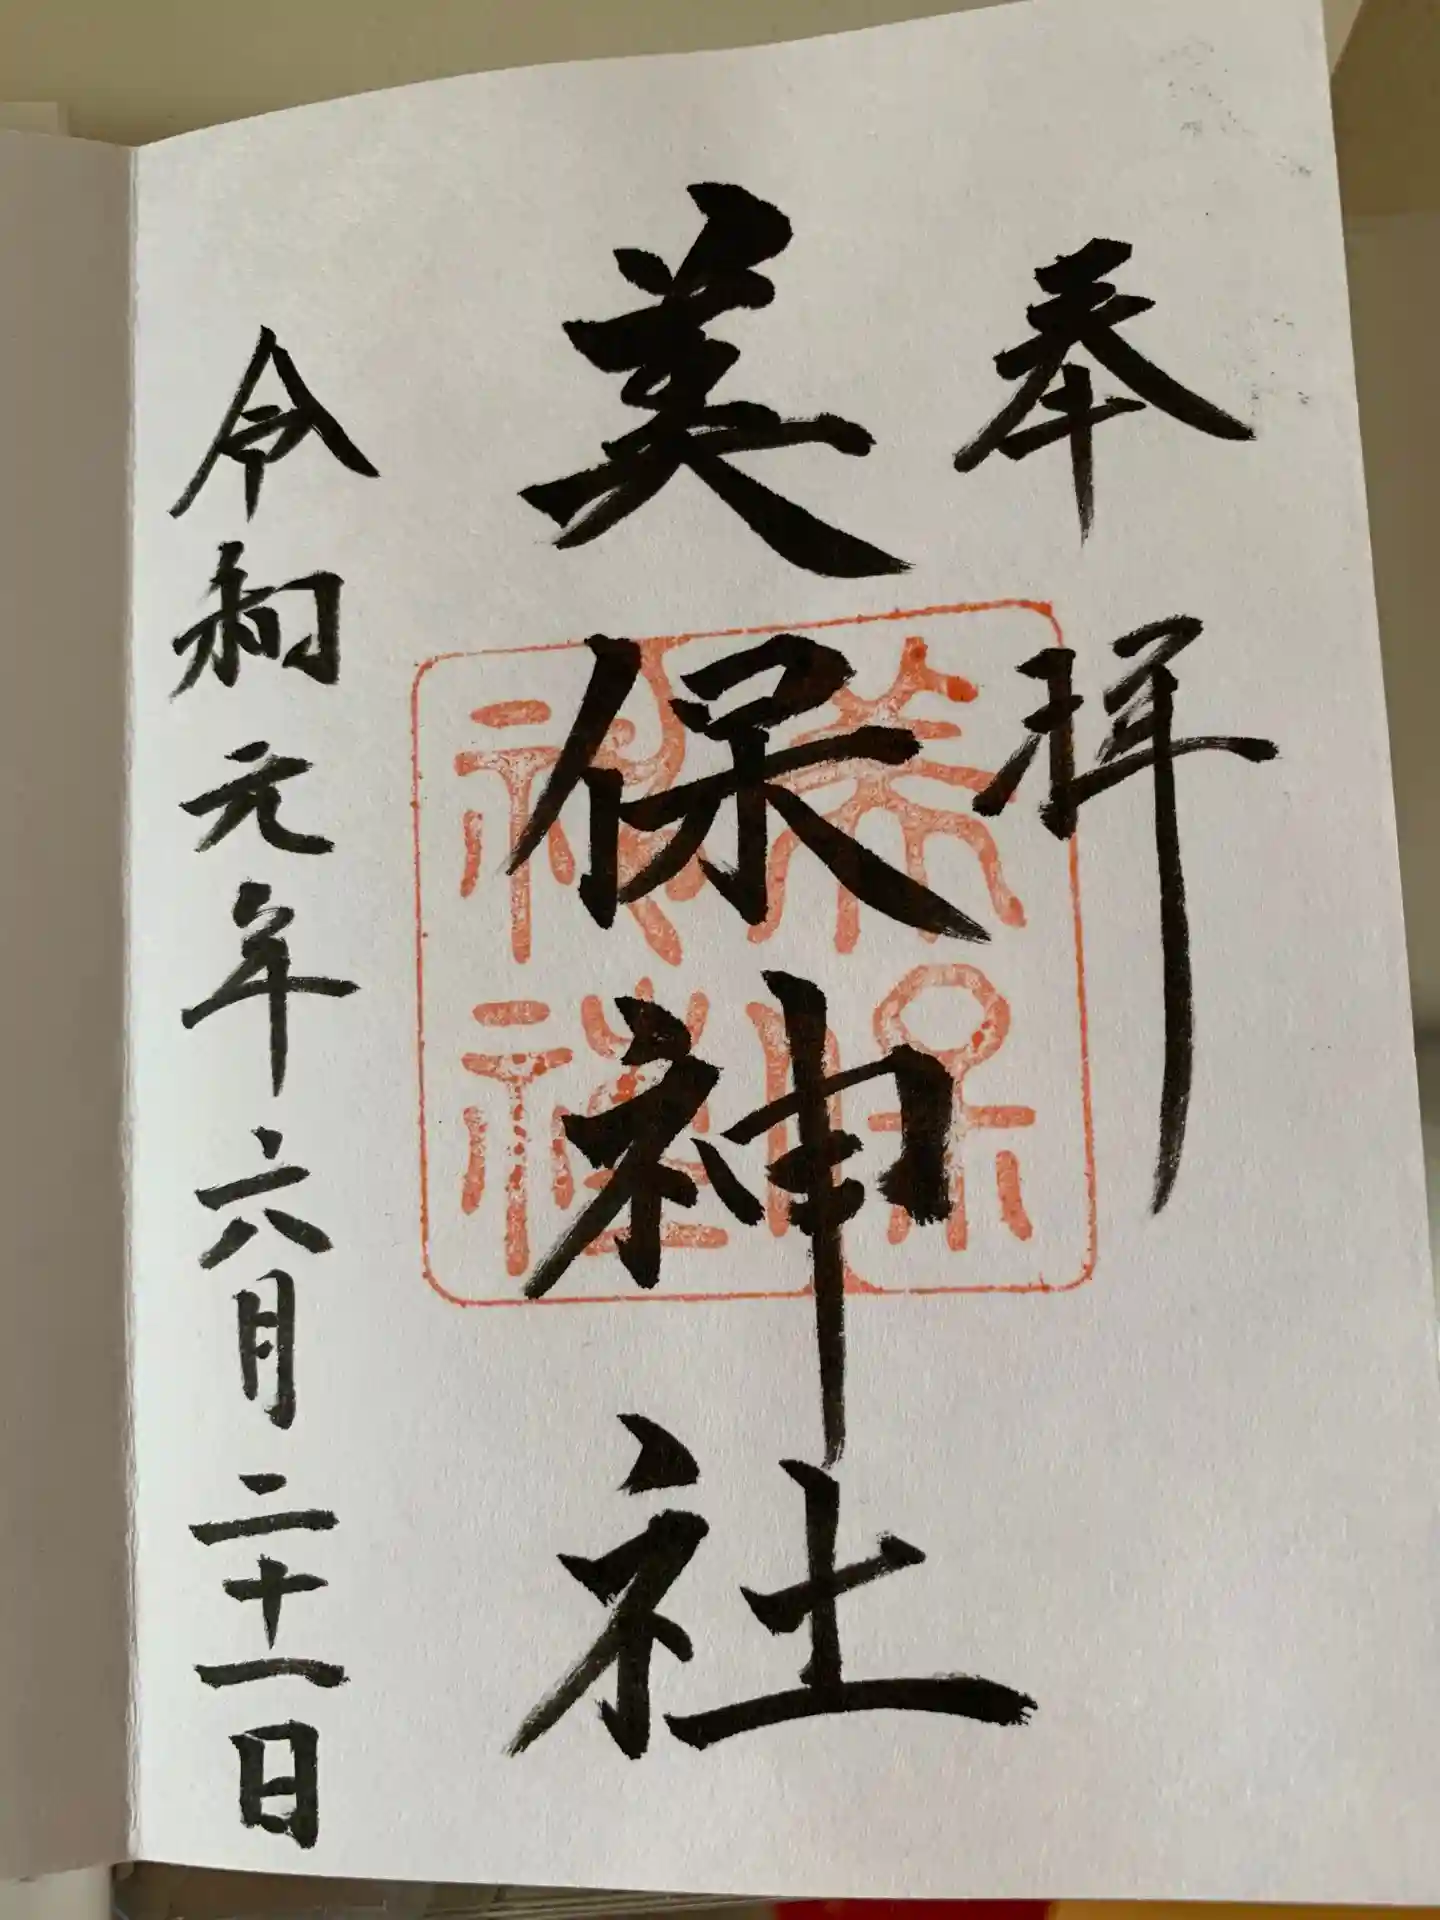 奉拝
美保神社
美保神社
令和元年六月二十一日